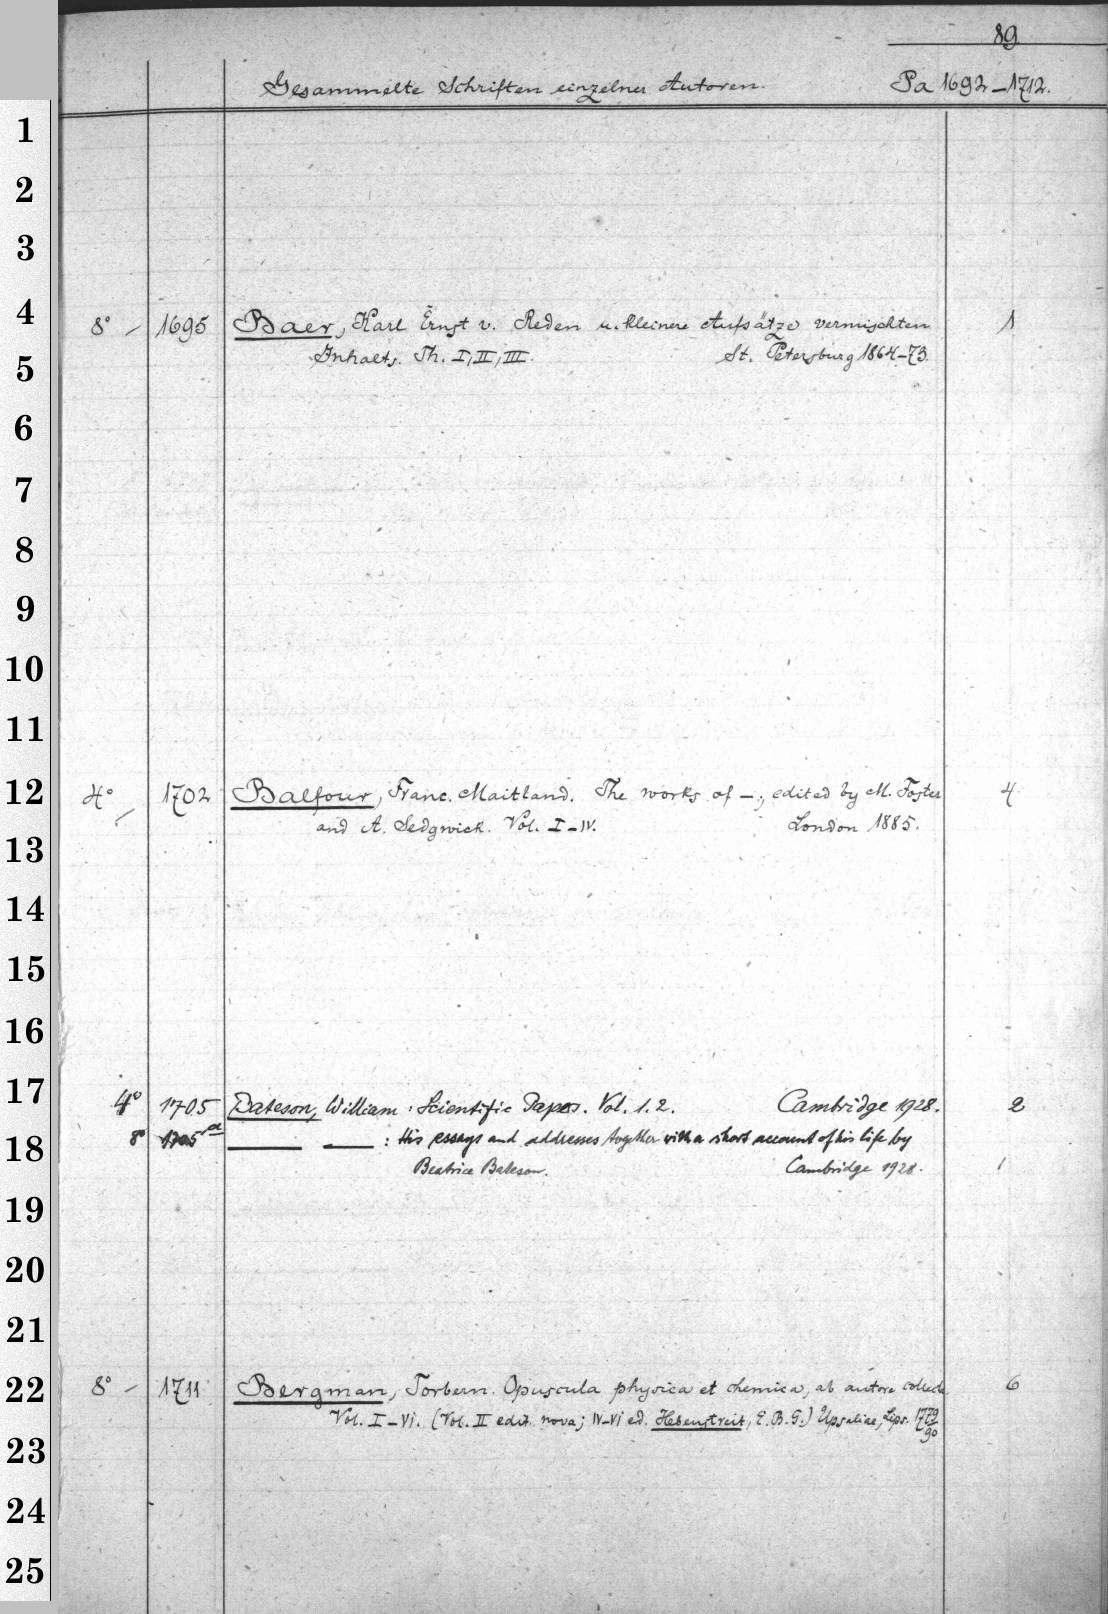 89
Gesammelte Schriften einzelner Autoren. Pa 1692-1712.
1
2
3
4
8° - 1695 Baer, Karl Ernst v. Reden u. kleinere Aufsätze vermischten 1
Inhalts. Th. I, II, III. St. Petersburg 1864-73.
5
6
7
8
9
10
11
12
4° - 1702 Balfour, Franc. Maitland. The works of -, edited by M. Foster 4
and A. Sedgwick. Vol. I-IV. London 1885.
13
14
15
16
17
4° 1705 Bateson, William: Scientific Papers. Vol. 1. 2. Cambridge 1928. 2
18
8° 1705a — — : His essays and addresses together with a short account of his life by
Beatrice Bateson. Cambridge 1928. 1
19
20
21
22
8° - 1711 Bergman, Torbern. Opuscula physica et chemica, ab autore collecta. 6
Vol. I-VI. (Vol. II edit. nova; IV-VI ed. Hebenstreit, E. B. G.) Upsaliae, Lips. 1779/90
23
24
25